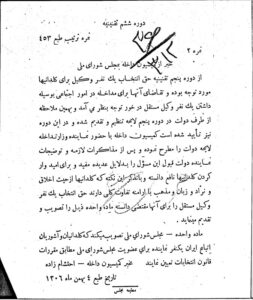 دوره ششم تقنینیه
نمره ترتیب طبع ۴۵۳
نمره ۲
خبر از کمیسیون داخله مجلس شورای ملی
از دوره پنجم تقنینیه حق انتخاب یک نفر وکیل برای کلدانیها
مورد توجه بوده و تقاضای آنها برای مداخله در امور اجتماعی بوسیله
داشتن یک نفر وکیل مستقل در خور توجه بنظر می آمد و بهمین ملاحظه
از طرف دولت در دوره پنجم لایحه تنظیم و تقدیم شده و در این دوره
نیز تأیید شده است کمیسیون داخله با حضور نماینده وزارت داخله
لایحه دولت را مطرح نموده و پس از مذاکرات لازمه و توضیحات
نماینده دولت قبول این مسئول را بدلایل عدیده مفید و برای امید وار
کردن کلدانیها نافع دانسته و باتذکر این نکته که کلدانیها از حیث اخلاق
و نژاد و زبان و مذهب با ارامنه تفاوت کلی دارند حق انتخاب یک نفر
وکیل مستقل را برای آنها مقتضی دانسته ماده واحده ذیل را تصویب و
تقدیم مینماید
ماده واحده - مجلس شورای ملی تصویب میکند که کلدانیان و آشوریان
اتباع ایران یکنفر نماینده برای عضویت مجلس شورای ملی مطابق مقررات
قانون انتخابات تعیین نمایند مخبر کمیسیون داخله - احتشام زاده
تاریخ طبع ۴ بهمن ماه ۱۳۰۶
مطبعه مجلس